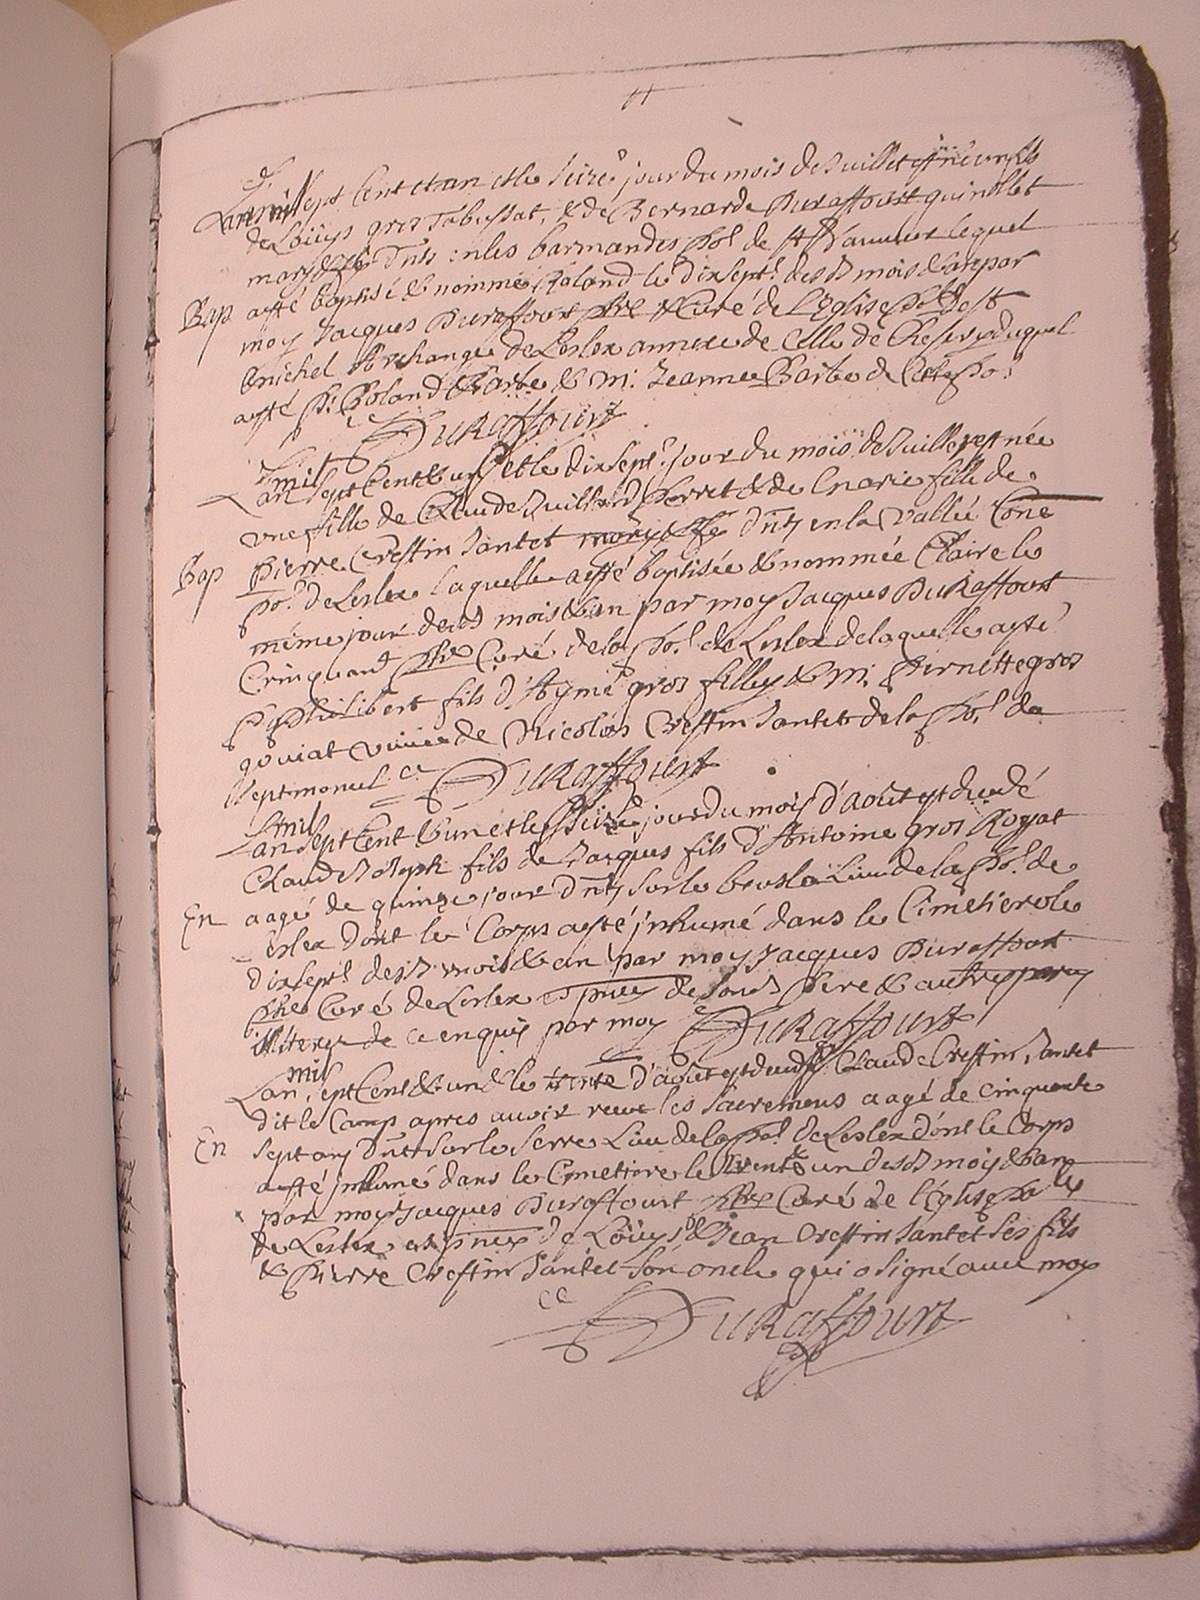 11
Lan mil sept Cent et un et le seize jour du mois de Juillet est né un fils
de Loüys gros Tabussat, & de Bernarde Duraffourt qui n'ollet
maryés dnts en les barmandes de st lequel
Bap a esté baptisé & nommé Roland le dixsept desd mois & an par
moy Jacques Duraffourt pbre Curé de L'Eglise de st
michel Archange de Leslex annexe de Celle de Chesery duquel
a esté pr Roland Barbe & m. Jeanne Barbe de
Duraffourt
Lan mil sept Cent & un et le dixsept jour du mois de Juillet est née
vne fille de Claude Juilliard Perret & de Marie fille de
Pierre Crestin Santet dnts en la vallé Cone
Bap de Leslex laquelle a esté baptisée & nommée Claire le
même jour desd mois & an par moy Jacques Duraffourt
Crinquand pbre Curé de la de Leslex de laquelle a esté
pr Philibert fils d'Aymé gros filly & m. Pernette gros
goviat de Nicolas Crestin Santet de la de
Septmoncel Duraffourt
Lan mil sept Cent & un et le seize jour du mois d'août est decedé
Claude Joseph fils de Jacques fils d'Antoine gros Royat
En aagé de quinze jour dnts sur le Lieu de la de
Leslex dont le Corps a esté inhumé dans le Cimetiere le
dixsept desd mois & an par moy Jacques Duraffourt
pbre Curé de Leslex de Sond Pere & autres
illiterez de ce enquis par moy Duraffourt
Lan mil sept Cent & un & le trente d'août est Claude Crestin Santet
dit le Camp apres avoir receu les Sacremens aagé de cinquante
En Sept ans dnt sur le Serre Lieu de la de Leslex dont le Corps
a esté inhumé dans le Cimettiere le trente & un desd mois & an
par moy Jacques Duraffourt pbre Curé de l'Eglise
de Leslex de Loüys & Jean Crestin Santet ses fils
& Pierre Crestin Santet son oncle qui a signé avec moy
Duraffourt